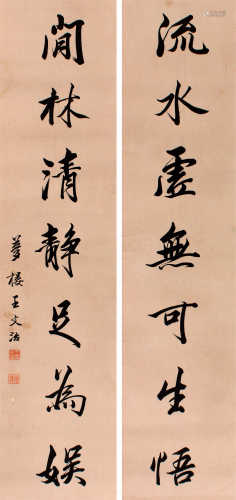 流水虚無可生悟
閒林清静足為娱
夢楼王文治